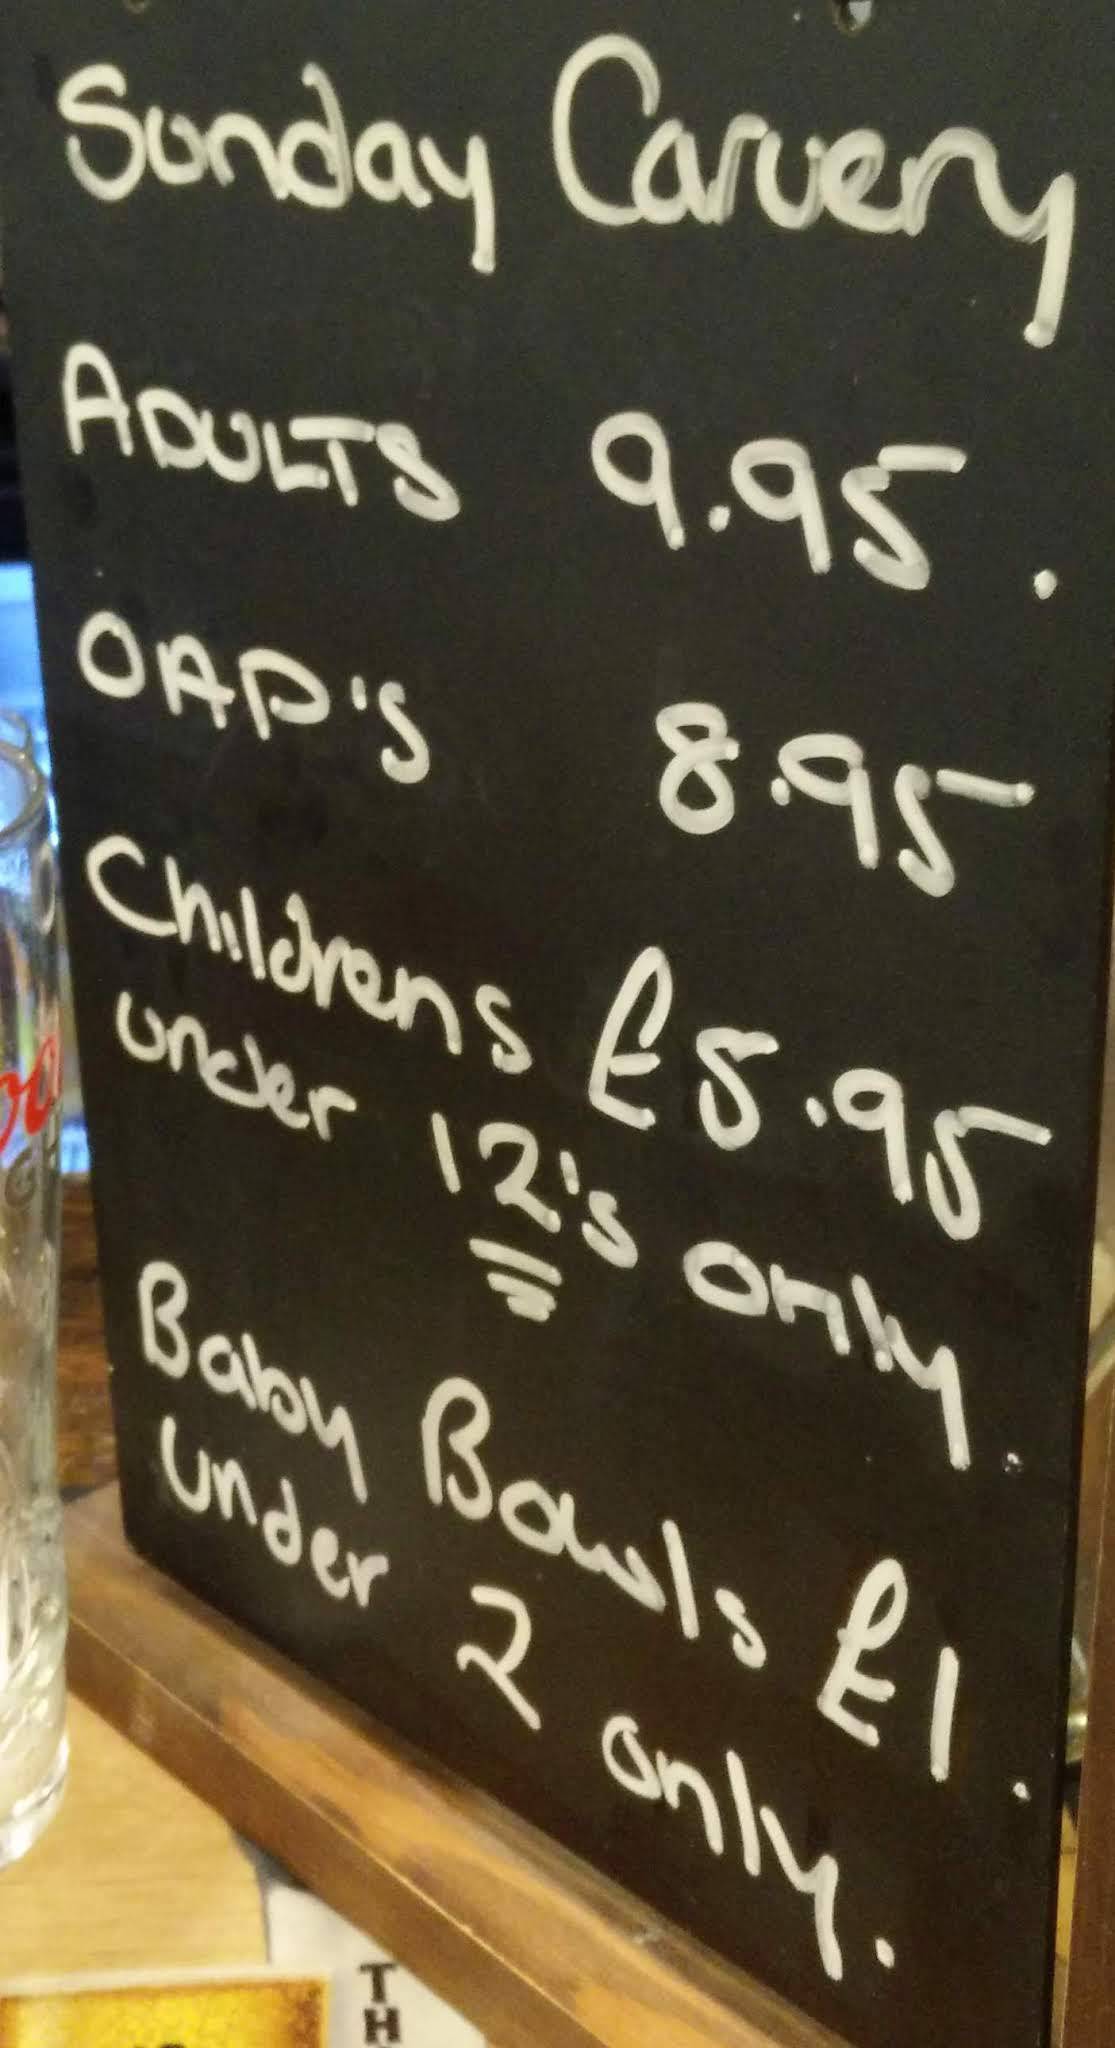 Sunday Carvery
ADULTS 9.95.
OAP's 8.95
Childrens £5.95
under 12's only.
Baby Bowls £1.
under 2 only.
TH